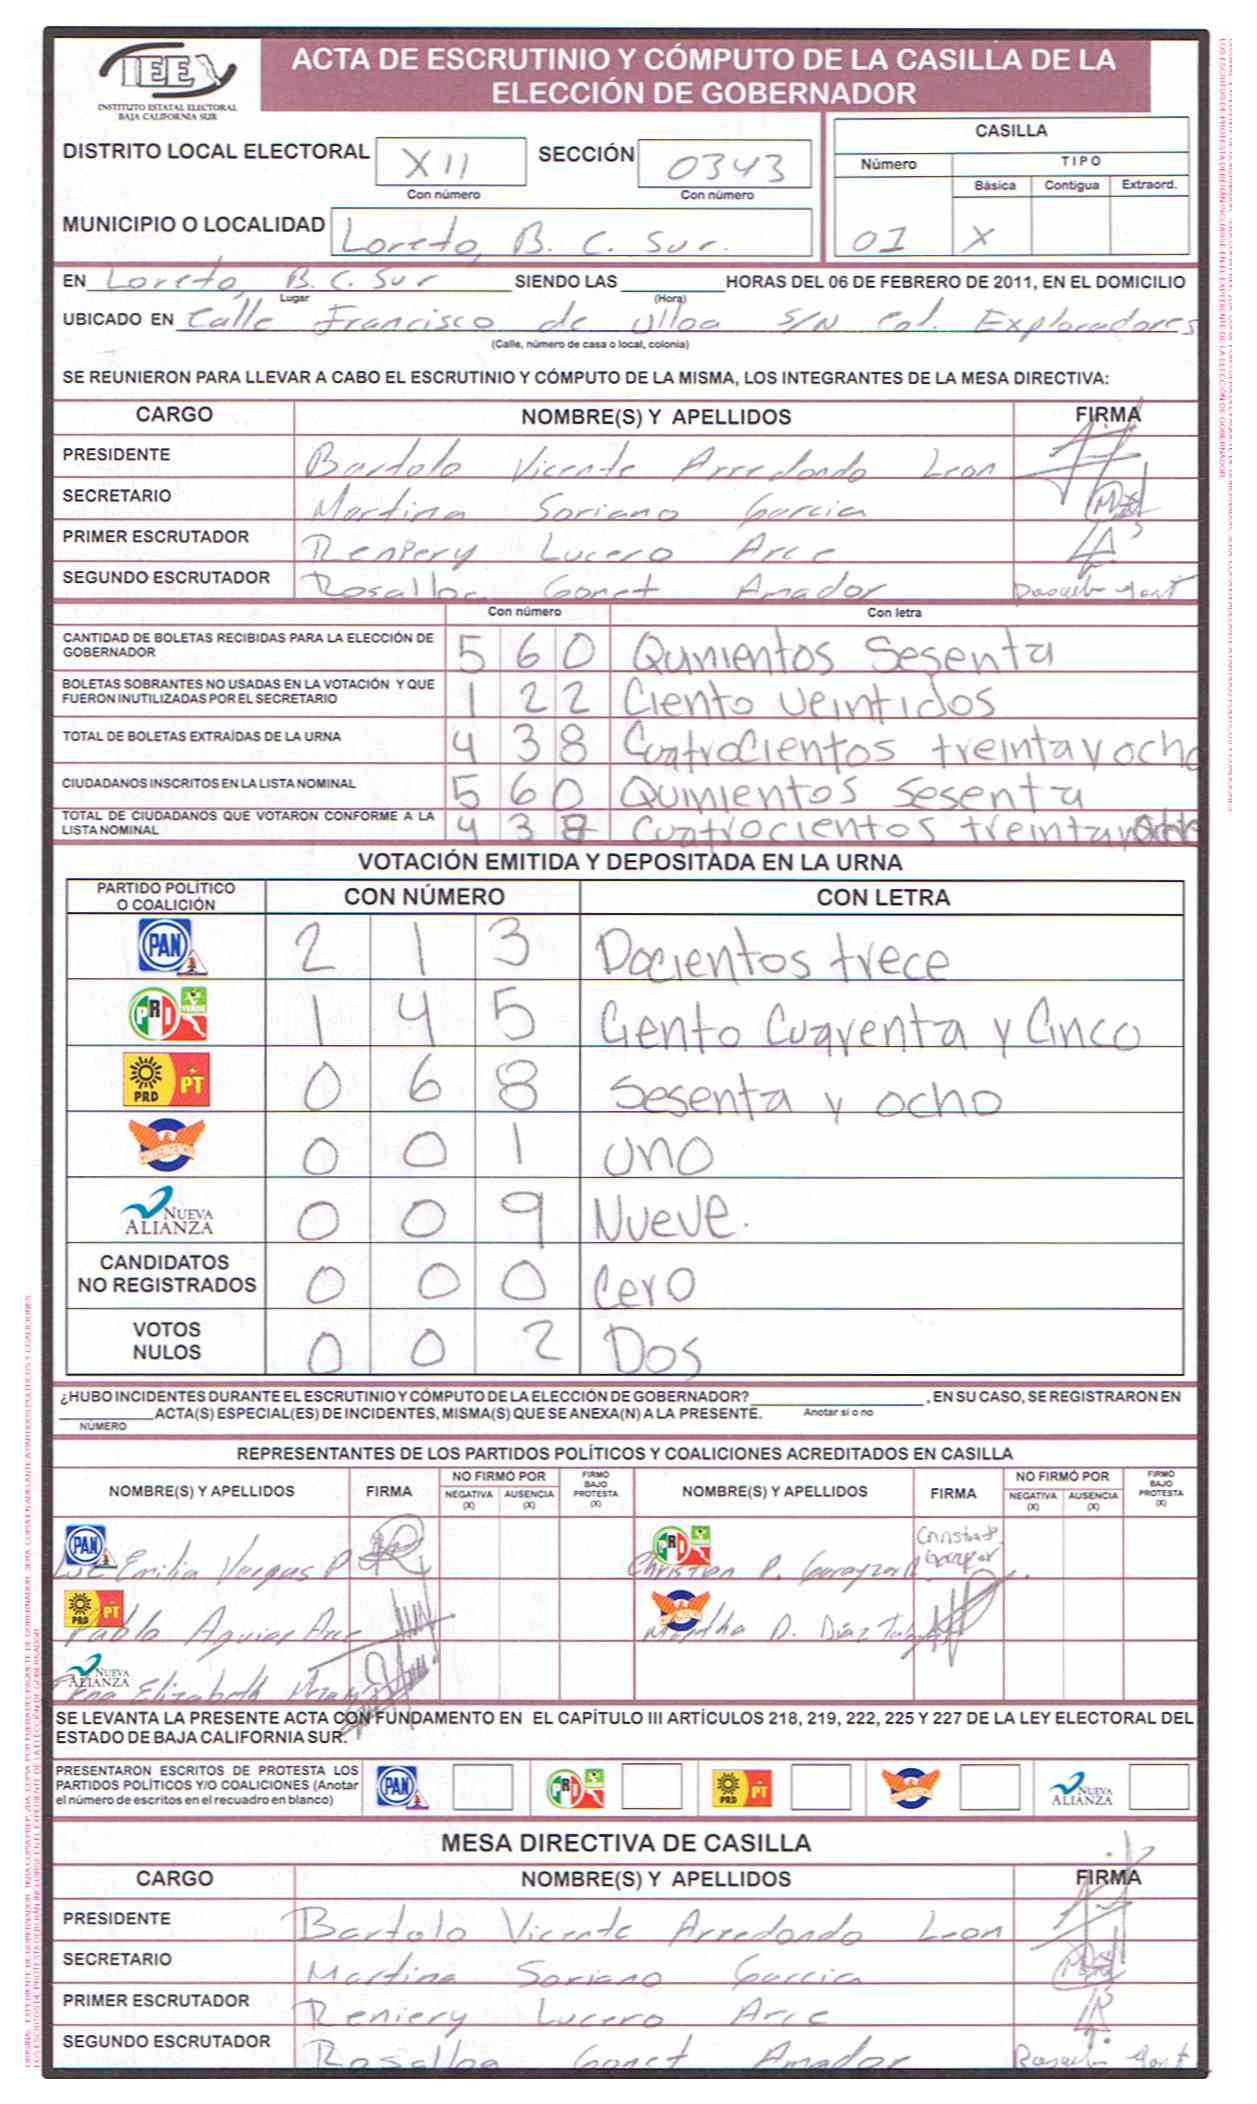 IEE
INSTITUTO ESTATAL ELECTORAL
BAJA CALIFORNIA SUR
ACTA DE ESCRUTINIO Y CÓMPUTO DE LA CASILLA DE LA
ELECCIÓN DE GOBERNADOR
DISTRITO LOCAL ELECTORAL XII SECCIÓN 0343
Con número Con número
MUNICIPIO O LOCALIDAD Loreto, B. C. Sur.
CASILLA
Número TIPO
Básica Contigua Extraord.
01 X
EN Loreto, B. C. Sur SIENDO LAS HORAS DEL 06 DE FEBRERO DE 2011, EN EL DOMICILIO
Lugar (Hora)
UBICADO EN Calle Francisco de Ulloa S/N Col. Exploradores
(Calle, número de casa o local, colonia)
SE REUNIERON PARA LLEVAR A CABO EL ESCRUTINIO Y CÓMPUTO DE LA MISMA, LOS INTEGRANTES DE LA MESA DIRECTIVA:
CARGO NOMBRE(S) Y APELLIDOS FIRMA
PRESIDENTE Bartolo Vicente Arredondo Leon
SECRETARIO Martina Soriano Garcia
PRIMER ESCRUTADOR Reniery Lucero Arce
SEGUNDO ESCRUTADOR Rosalba Gonet Amador
Con número Con letra
CANTIDAD DE BOLETAS RECIBIDAS PARA LA ELECCIÓN DE
GOBERNADOR 560 Qunientos Sesenta
BOLETAS SOBRANTES NO USADAS EN LA VOTACIÓN Y QUE
FUERON INUTILIZADAS POR EL SECRETARIO 122 Ciento Veintidos
TOTAL DE BOLETAS EXTRAÍDAS DE LA URNA 438 Cuatrocientos treinta y ocho
CIUDADANOS INSCRITOS EN LA LISTA NOMINAL 560 Quinientos Sesenta
TOTAL DE CIUDADANOS QUE VOTARON CONFORME A LA
LISTA NOMINAL 438 Cuatrocientos treinta y ocho
VOTACIÓN EMITIDA Y DEPOSITADA EN LA URNA
PARTIDO POLÍTICO
O COALICIÓN CON NÚMERO CON LETRA
PAN 2 1 3 Docientos trece
PRI VERDE 1 4 5 Ciento Cuarenta y Cinco
PRD PT 0 6 8 Sesenta y ocho
CONVERGENCIA 0 0 1 uno
NUEVA
ALIANZA 0 0 9 Nueve.
CANDIDATOS
NO REGISTRADOS 0 0 0 Cero
VOTOS
NULOS 0 0 2 Dos
¿HUBO INCIDENTES DURANTE EL ESCRUTINIO Y CÓMPUTO DE LA ELECCIÓN DE GOBERNADOR? , EN SU CASO, SE REGISTRARON EN
ACTA(S) ESPECIAL(ES) DE INCIDENTES, MISMA(S) QUE SE ANEXA(N) A LA PRESENTE. Anotar si o no
NÚMERO
REPRESENTANTES DE LOS PARTIDOS POLÍTICOS Y COALICIONES ACREDITADOS EN CASILLA
NOMBRE(S) Y APELLIDOS FIRMA NO FIRMÓ POR NEGATIVA (X) AUSENCIA (X) FIRMÓ BAJO PROTESTA (X) NOMBRE(S) Y APELLIDOS FIRMA NO FIRMÓ POR NEGATIVA (X) AUSENCIA (X) FIRMÓ BAJO PROTESTA (X)
PAN Luz Emilia Vargas P. PRI Christian P.
PRD PT Pablo Aguiar Arce Martha D. Díaz
NUEVA
ALIANZA Ana Elizabeth
SE LEVANTA LA PRESENTE ACTA CON FUNDAMENTO EN EL CAPÍTULO III ARTÍCULOS 218, 219, 222, 225 Y 227 DE LA LEY ELECTORAL DEL
ESTADO DE BAJA CALIFORNIA SUR.
PRESENTARON ESCRITOS DE PROTESTA LOS
PARTIDOS POLÍTICOS Y/O COALICIONES (Anotar
el número de escritos en el recuadro en blanco) PAN PRI PRD PT NUEVA ALIANZA
MESA DIRECTIVA DE CASILLA
CARGO NOMBRE(S) Y APELLIDOS FIRMA
PRESIDENTE Bartolo Vicente Arredondo Leon
SECRETARIO Martina Soriano Garcia
PRIMER ESCRUTADOR Reniery Lucero Arce
SEGUNDO ESCRUTADOR Rosalba Gonet Amador